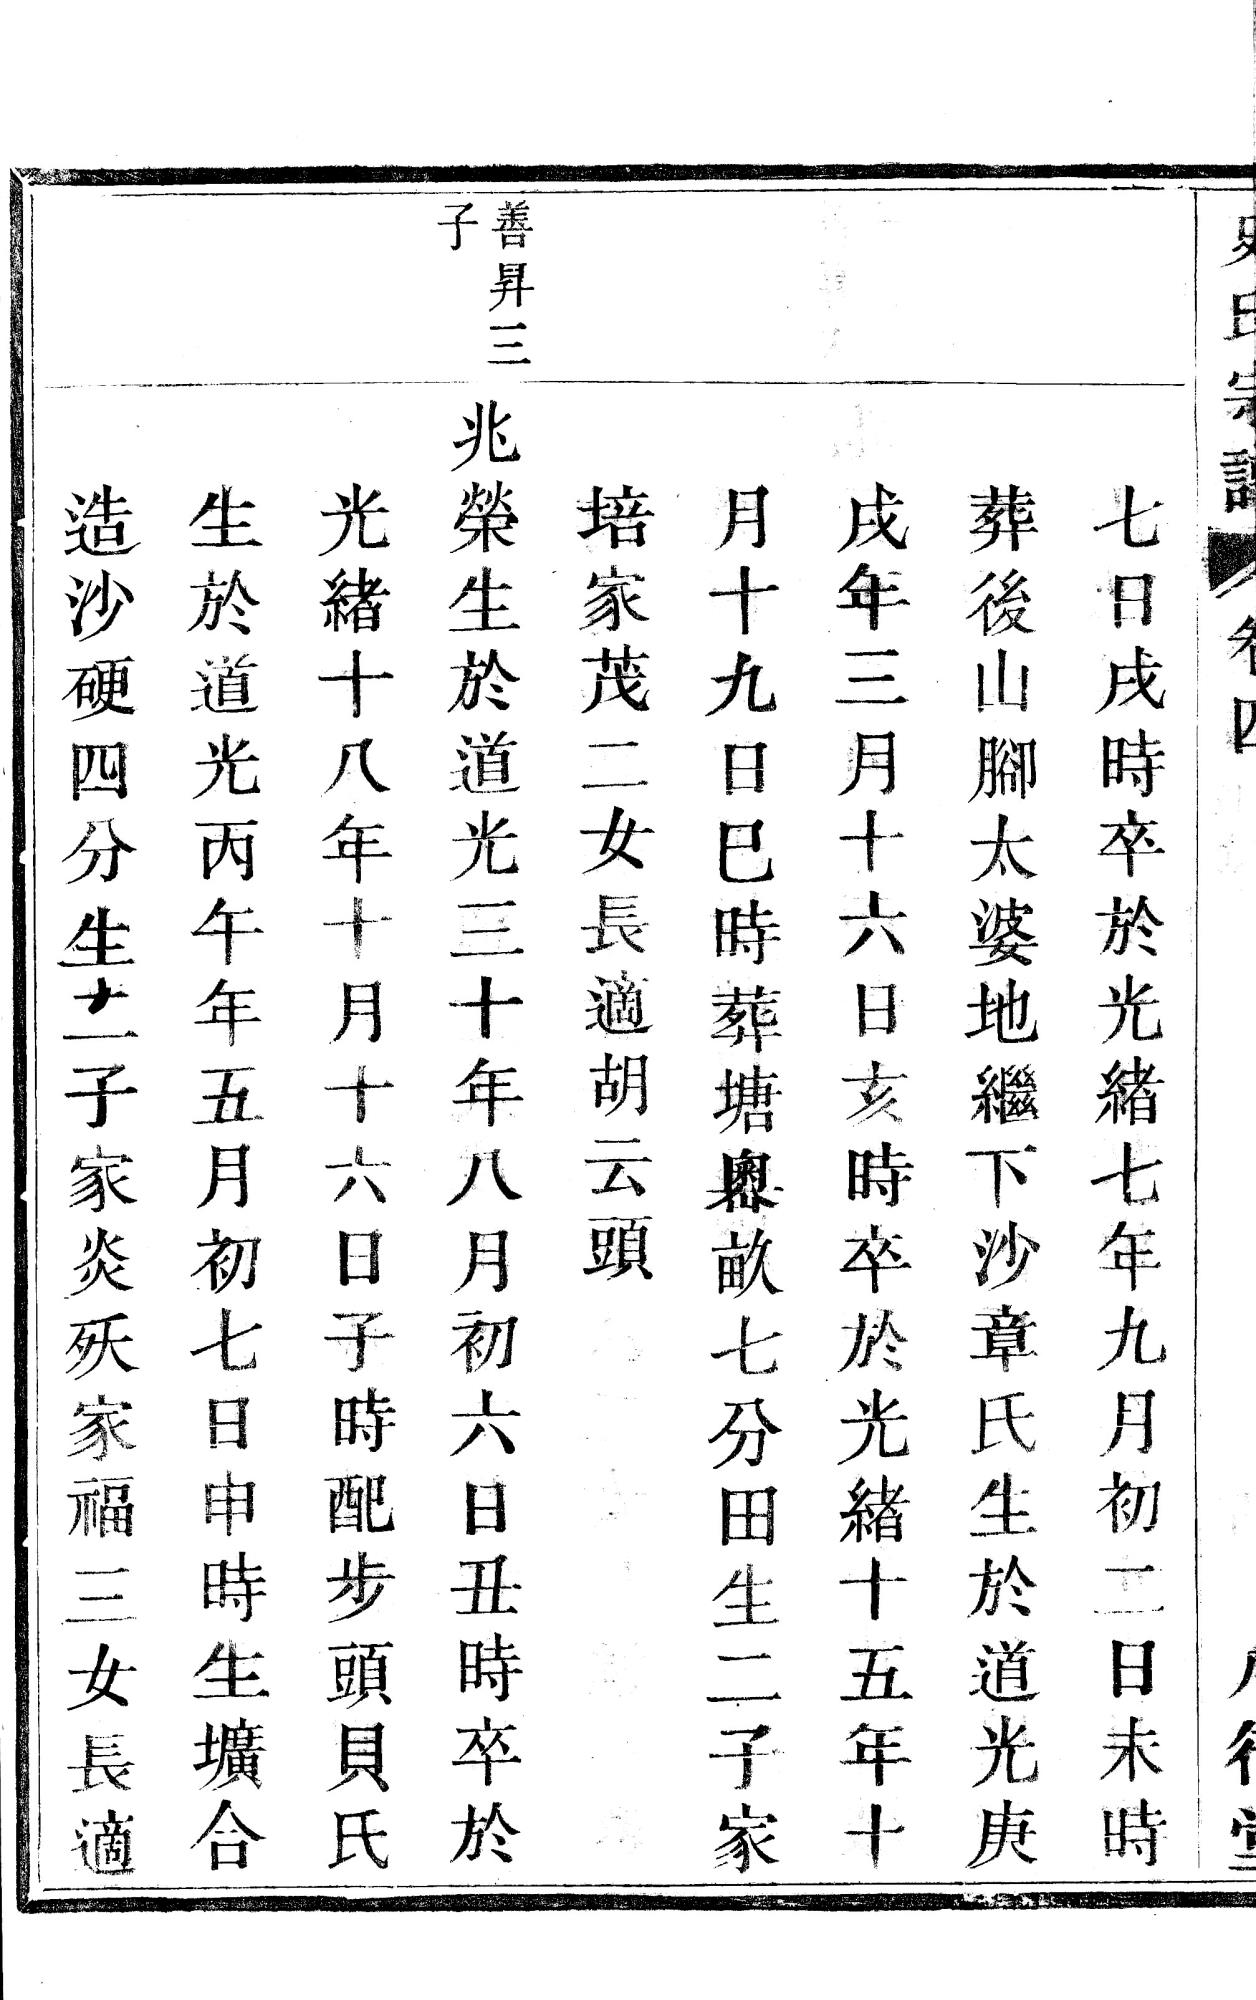 氏宗譜 卷四 堂
七日戌時卒於光緒七年九月初二日未時
葬後山腳太婆地繼下沙章氏生於道光庚
戌年三月十六日亥時卒於光緒十五年十
月十九日巳時葬塘奧畝七分田生二子家
培家茂二女長適胡云頭
善昇三
子
兆榮生於道光三十年八月初六日丑時卒於
光緒十八年十月十六日子時配步頭貝氏
生於道光丙午年五月初七日申時生壙合
造沙硬四分生二子家炎殀家福三女長適